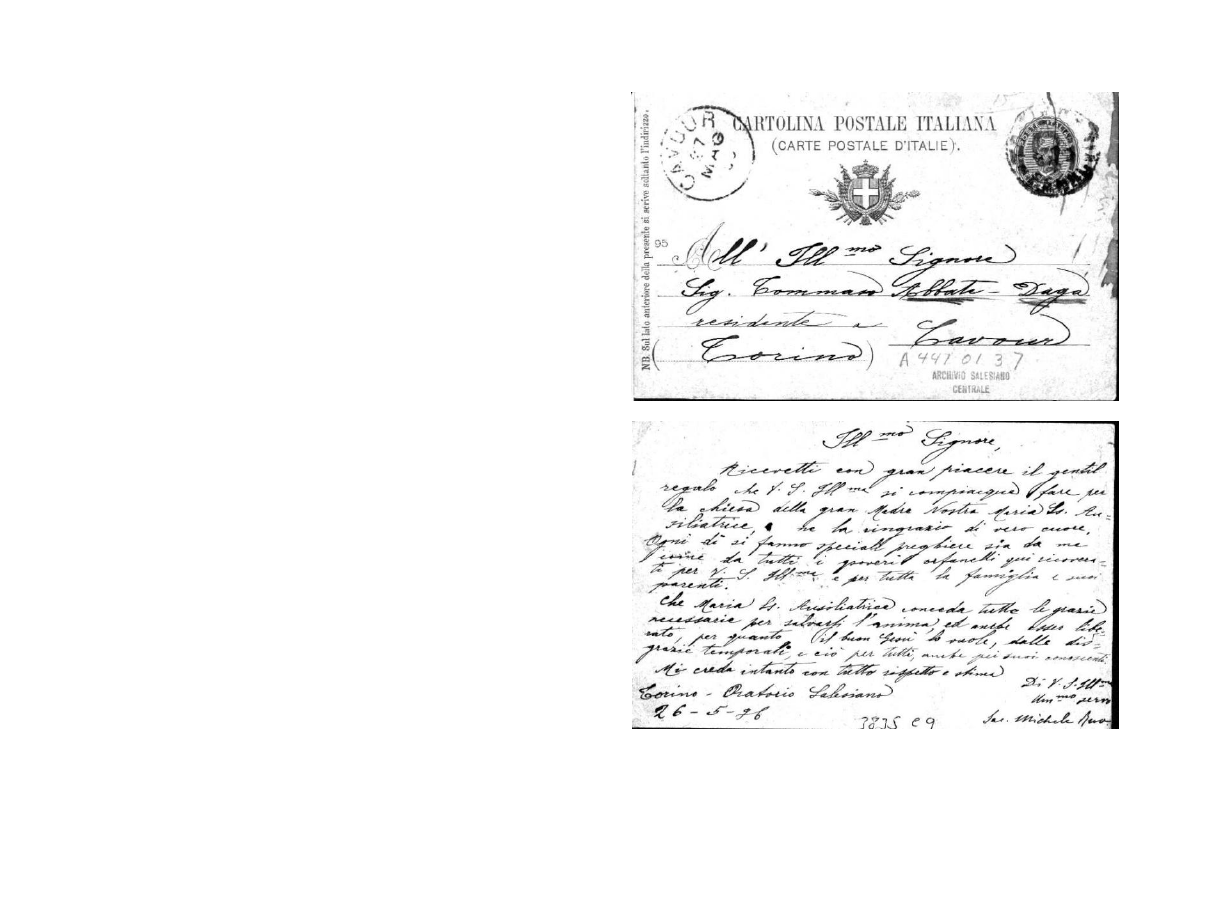 CAVOUR
27
MAG
CARTOLINA POSTALE ITALIANA
(CARTE POSTALE D'ITALIE).
NB. Sul lato anteriore della presente si scrive soltanto l'indirizzo.
95
All' Ill mo Signore
Sig. Tommaso Abbate - Daga
residente a Cavour
(Torino)
A 4410137
ARCHIVIO SALESIANO
CENTRALE
Ill mo Signore,
Ricevetti con gran piacere il gentil
regalo che V. S. Ill ma si compiacque fare per
la chiesa della gran Madre Nostra Maria Ss. Au=
siliatrice, ne la ringrazio di vero cuore.
Ogni dì si fanno speciali preghiere sia da me
come da tutti i poveri orfanelli qui ricovera=
ti per V. S. Ill ma e per tutta la famiglia e suoi
parenti.
Che Maria Ss. Ausiliatrice conceda tutte le grazie
necessarie per salvarsi l'anima, ed anche esser libe=
rato, per quanto il buon Gesù lo vuole, dalle dis=
grazie temporali, e ciò per tutti, anche pei suoi conoscenti.
Mi creda intanto con tutto rispetto e stima
Di V. S. Ill ma
Torino - Oratorio Salesiano
Um mo servo
26 - 5 - 96
Sac. Michele Rua
3835 C9